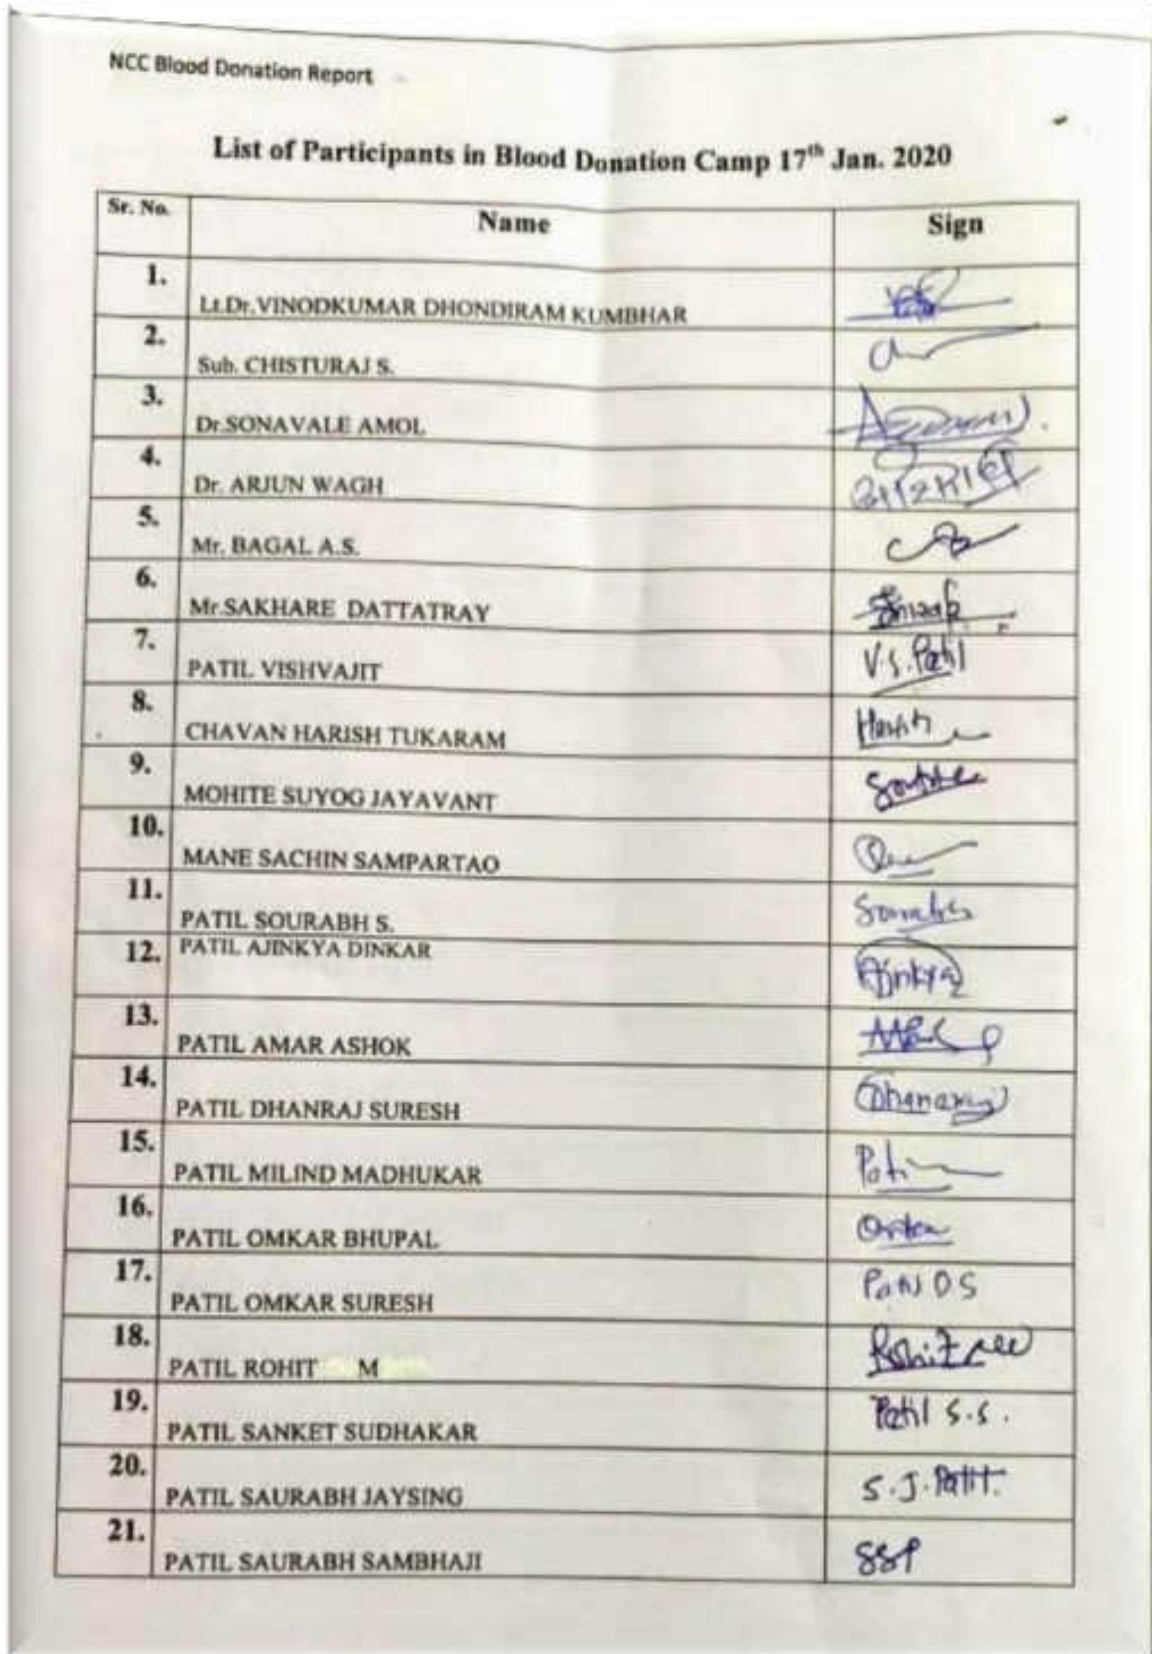 NCC Blood Donation Report
List of Participants in Blood Donation Camp 17th Jan. 2020
Sr. No. Name Sign
1. Lt.Dr.VINODKUMAR DHONDIRAM KUMBHAR
2. Sub. CHISTURAJ S.
3. Dr.SONAVALE AMOL
4. Dr. ARJUN WAGH
5. Mr. BAGAL A.S.
6. Mr.SAKHARE DATTATRAY
7. PATIL VISHVAJIT V.S.Patil
8. CHAVAN HARISH TUKARAM Harish
9. MOHITE SUYOG JAYAVANT
10. MANE SACHIN SAMPARTAO
11. PATIL SOURABH S.
12. PATIL AJINKYA DINKAR Ajinkya
13. PATIL AMAR ASHOK
14. PATIL DHANRAJ SURESH Dhanaraj
15. PATIL MILIND MADHUKAR
16. PATIL OMKAR BHUPAL
17. PATIL OMKAR SURESH Patil O S
18. PATIL ROHIT M Rohit
19. PATIL SANKET SUDHAKAR Patil S.S.
20. PATIL SAURABH JAYSING S.J.Patil.
21. PATIL SAURABH SAMBHAJI SSP